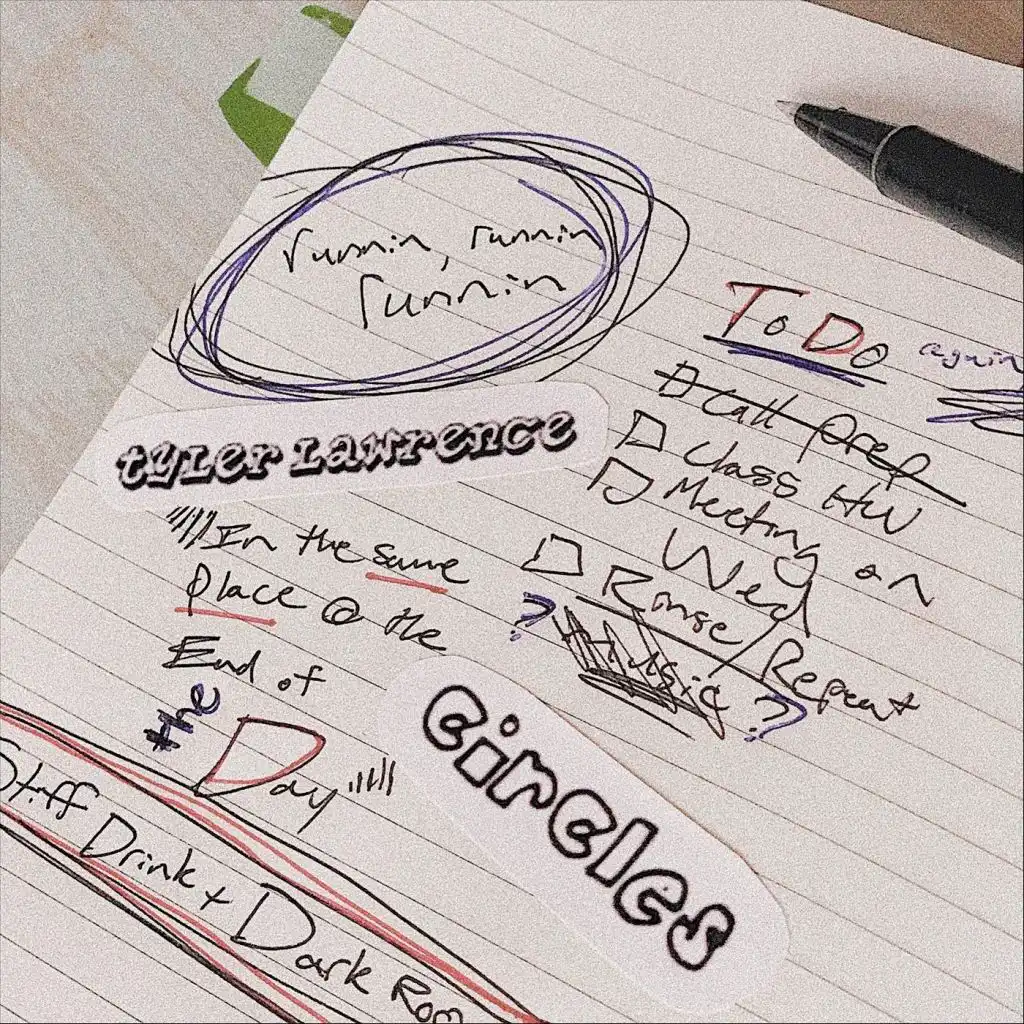 runnin, runnin
runnin
To Do
again
Call Prep
Class HW
Meeting on
Wed
Rinse/Repeat
? Music ?
tyler Lawrence
In the same
place @ the
End of
the Day
circles
Stiff Drink + Dark Rom